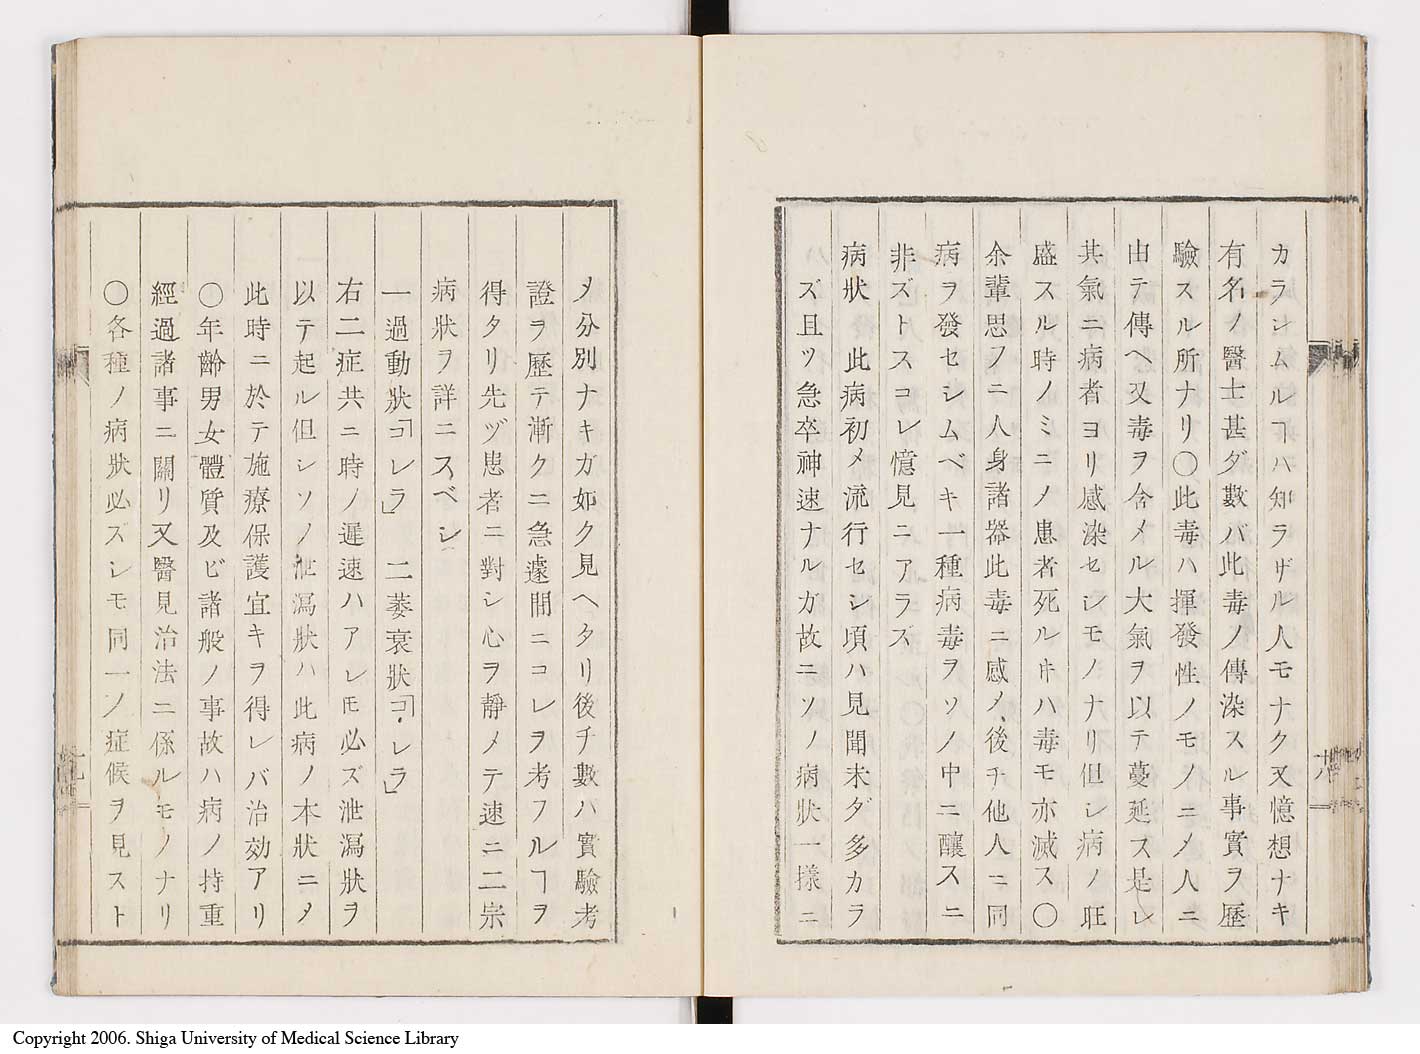 カラシムルヿハ知ラザル人モナク又憶想ナキ
有名ノ醫士甚ダ數バ此毒ノ傳染スル事實ヲ歷
驗スル所ナリ〇此毒ハ揮發性ノモノニメ人ニ
由テ傳ヘ又毒ヲ含メル大氣ヲ以テ蔓延ス是レ
其氣ニ病者ヨリ感染セシモノナリ但シ病ノ旺
盛スル時ノミニメ患者死ルキハ毒モ亦滅ス〇
余輩思フニ人身諸器此毒ニ感メ、後チ他人ニ同
病ヲ發セシムベキ一種病毒ヲソノ中ニ釀スニ
非ズトスコレ憶見ニアラス
病狀 此病初メ流行セシ頃ハ見聞未ダ多カラ
ズ且ツ急卒神速ナルガ故ニソノ病狀一様ニ
十八
メ分別ナキガ如ク見ヘタリ後チ數ハ實驗考
證ヲ歷テ漸クニ急遽間ニコレヲ考フルヿヲ
得タリ先ヅ患者ニ對シ心ヲ靜メテ速ニ二宗
病狀ヲ詳ニスベシ
一過動狀「コレラ」 二萎衰狀「コ・レラ」
右二症共ニ時ノ遲速ハアレモ必ズ泄瀉狀ヲ
以テ起ル但シソノ泄瀉狀ハ此病ノ本狀ニメ
此時ニ於テ施療保護宜キヲ得レバ治効アリ
〇年齡男女體質及ビ諸般ノ事故ハ病ノ持重
經過諸事ニ關リ又醫見治法ニ係ルモノナリ
〇各種ノ病狀必ズシモ同一ノ症候ヲ見スト
十九
Copyright 2006. Shiga University of Medical Science Library